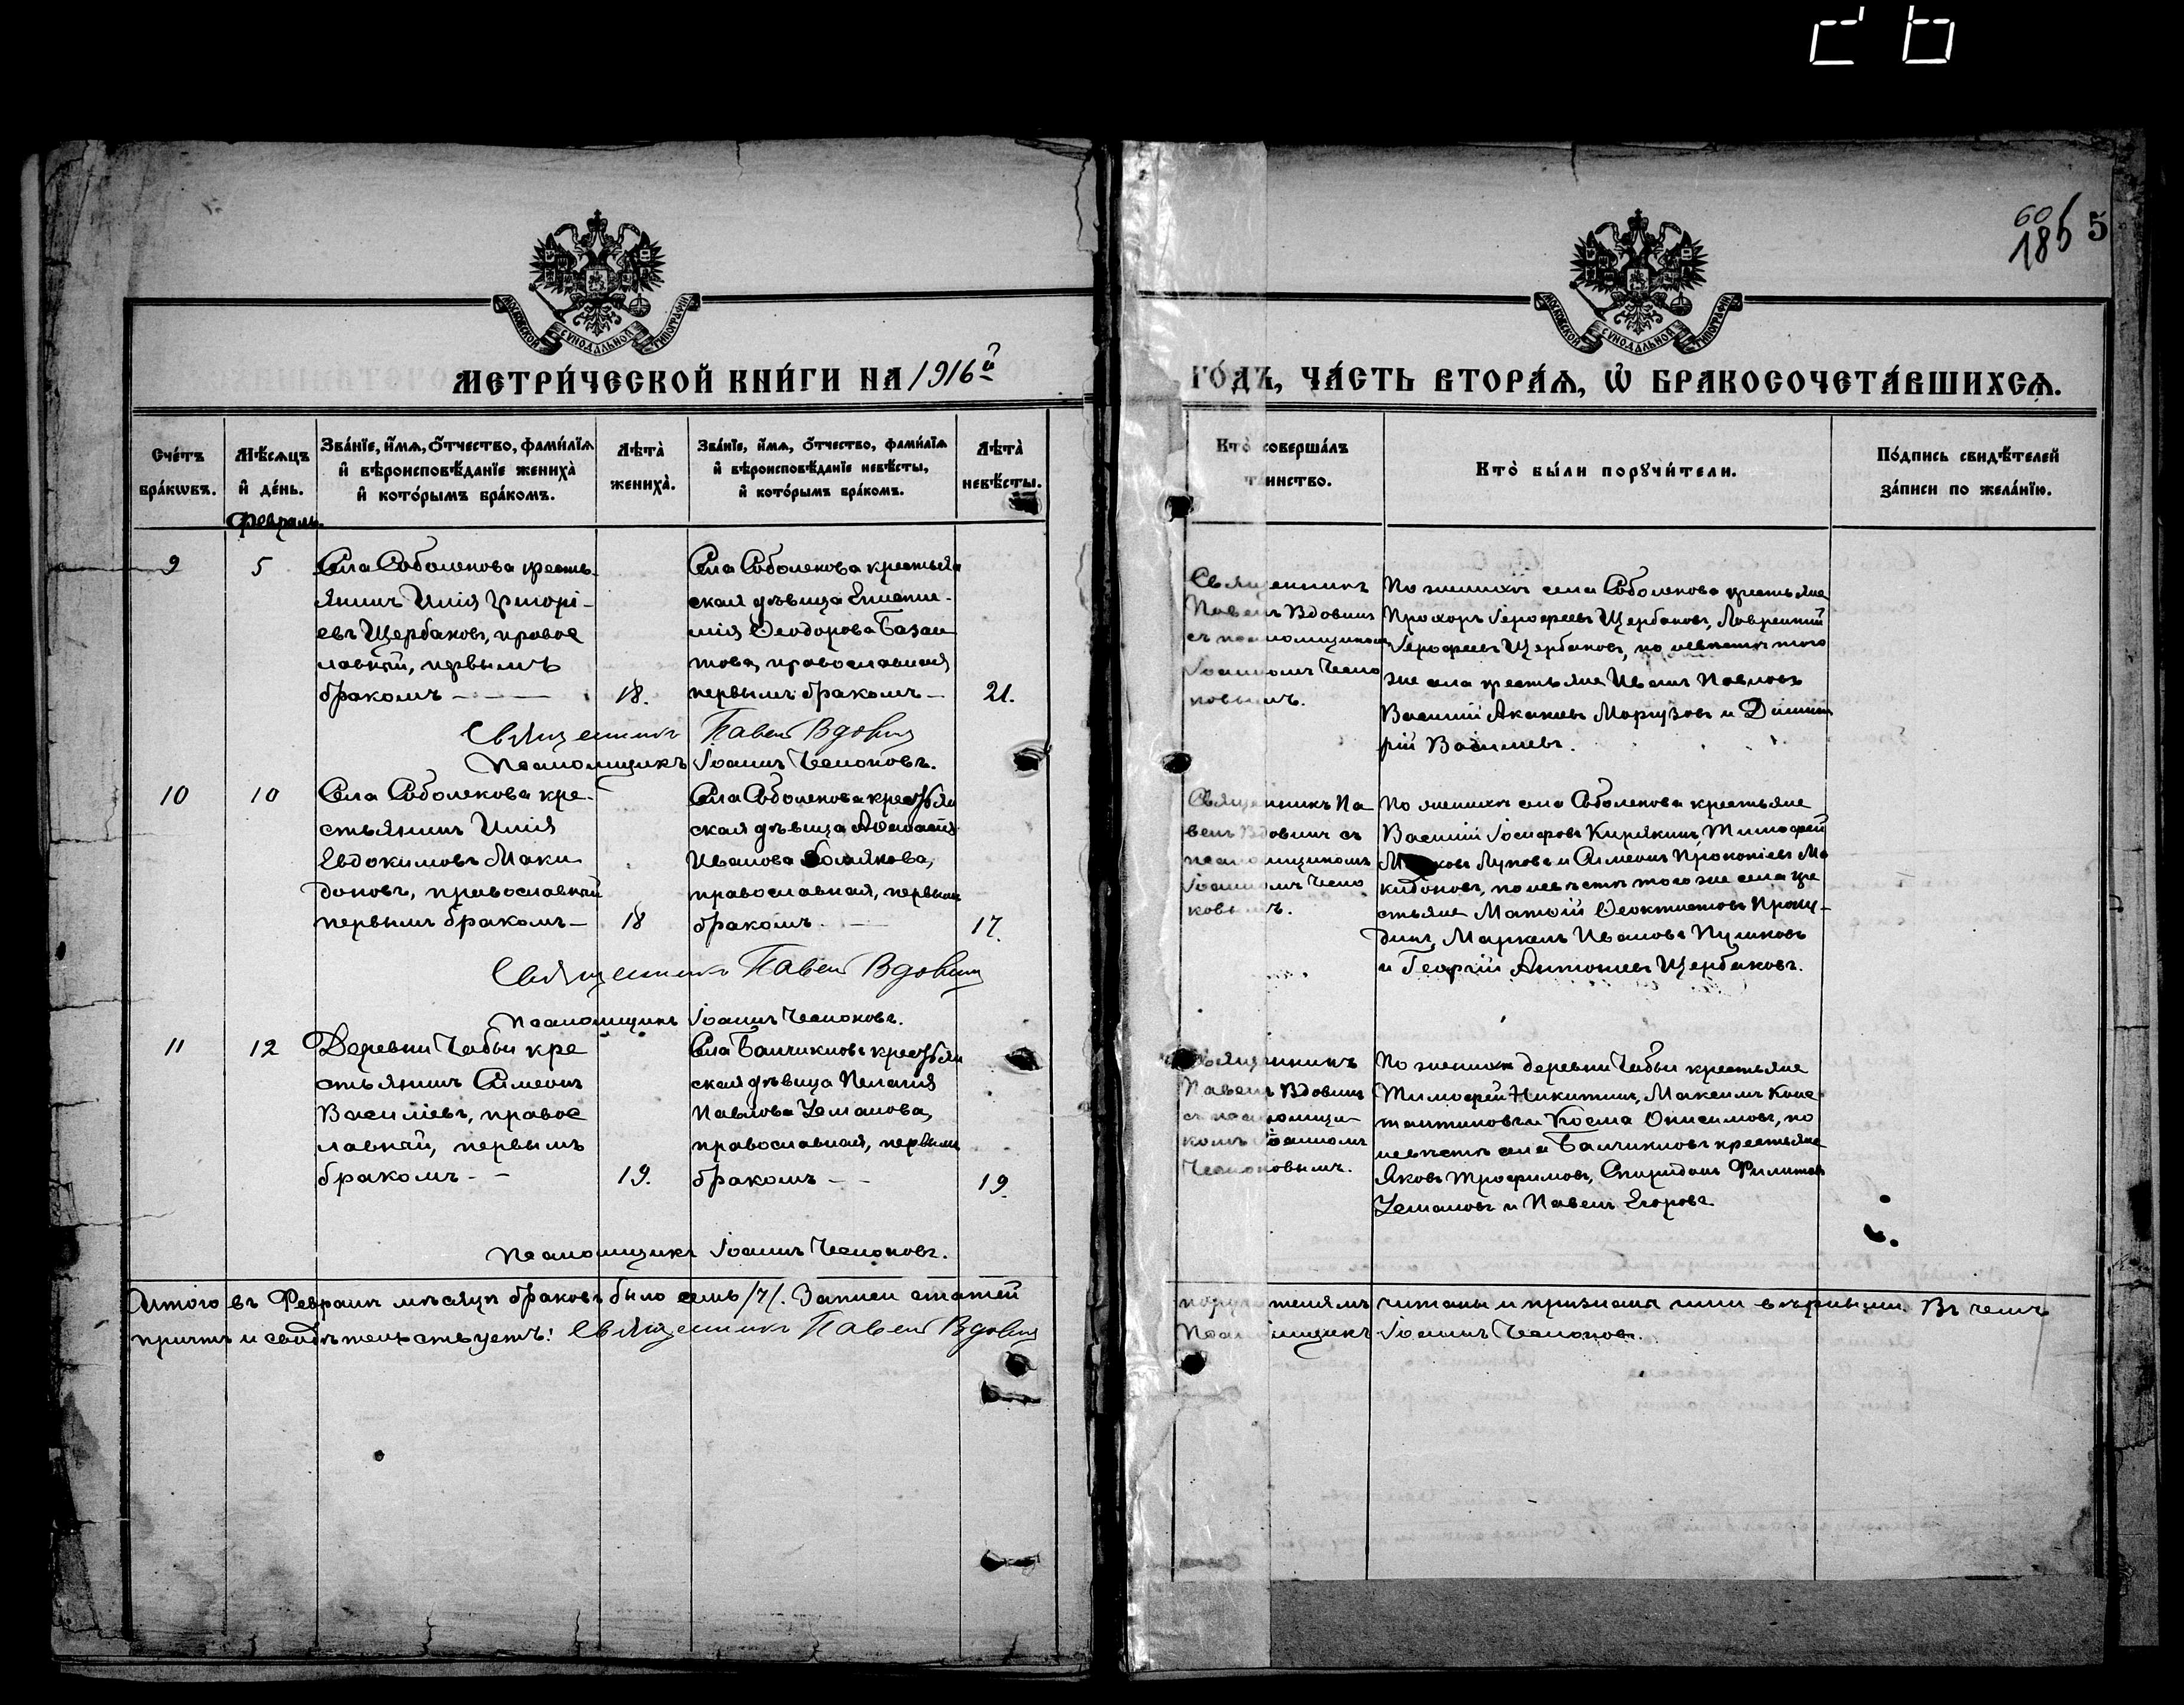 60
185
5
МОСКОВСКОЙ СѴНОДАЛЬНОЙ ТИПОГРАФІИ
МОСКОВСКОЙ СѴНОДАЛЬНОЙ ТИПОГРАФІИ
МЕТРИ́ЧЕСКОЙ КНИ́ГИ НА 1916й
ГО́ДЪ, ЧА́СТЬ ВТОРА́Ѧ, Ѡ҆ БРАКОСОЧЕТА́ВШИХСѦ.
Сче́тъ бра́кѡвъ.
Мѣ́сѧцъ и҆ де́нь.
Зва́нїе, и҆́мѧ, ѻ҆́тчество, фами́лїѧ и҆ вѣроисповѣ́данїе жениха̀ и҆ кото́рымъ бра́комъ.
Лѣта̀ жениха̀.
Зва́нїе, и҆́мѧ, ѻ҆́тчество, фами́лїѧ и҆ вѣроисповѣ́данїе невѣ́сты, и҆ кото́рымъ бра́комъ.
Лѣта̀ невѣ́сты.
Кто̀ соверша́лъ таинство.
Кто̀ бы́ли порꙋчи́тели.
По́дпись свидѣ́телей за́писи по жела́нїю.
Февраль.
9
5
Села Соболекова кресть-
янинъ Илія Григорі-
евъ Щербаковъ, правос
лавный, первымъ
бракомъ — 18.
Села Соболекова крестьян
ская дѣвица Епистие-
мія Ѳеодорова Базан
това, православная
первымъ бракомъ — 21.
Священникъ
Павелъ Вдовинъ
съ псаломщикомъ
Іоанномъ Чело
ковымъ.
По женихѣ села Соболекова крестьяне
Прохоръ Іерофеевъ Щербаковъ, Лаврентій
Іерофеевъ Щербаковъ, по невѣстѣ того
же села крестьяне Иванъ Павловъ
Василій Акакіевъ Маргузовъ и Димит
рій Васильевъ.
Священникъ Павелъ Вдовинъ
Псаломщикъ Іоаннъ Челоковъ.
10
10
Села Соболекова кре-
стьянинъ Илія
Евдокимовъ Маки
доновъ, православный
первымъ бракомъ — 18
Села Соболекова крестьян
ская дѣвица
Иванова
православная, первымъ
бракомъ — 17.
Священникъ Па
велъ Вдовинъ съ
псаломщикомъ
Іоанномъ Чело
ковымъ.
По женихѣ села Соболекова крестьяне
Василій Іосифовъ Кирякинъ, Тимофей
Луповъ и Симеонъ Прокопіевъ Ма
кидоновъ, по невѣстѣ того же села кре
стьяне Матѳій Ѳеоктистовъ Проку-
динъ, Маркелъ Ивановъ Пушковъ
и Георгій Антоніевъ Щербаковъ.
Священникъ Павелъ Вдовинъ
Псаломщикъ Іоаннъ Челоковъ.
11
12
Деревни Чабьи кре
стьянинъ Симеонъ
Васильевъ, правос
лавный, первымъ
бракомъ — 19.
Села Балчиклов крестьян
ская дѣвица Пелагія
Павлова Усманова,
православная, первымъ
бракомъ — 19.
Священникъ
Павелъ Вдовинъ
съ псаломщи
комъ Іоанномъ
Челоковымъ.
По женихѣ деревни Чабьи крестьяне
Тимофей Никитинъ, Максимъ Конс
тантиновъ и Косма Онисимовъ, по
невѣстѣ села Балчиклов крестьяне
Яковъ Трофимовъ, Спиридонъ Филипов
Усмановъ и Павелъ Егоровъ
Псаломщикъ Іоаннъ Челоковъ.
Итого въ Февралѣ мѣсяцѣ браковъ было семь /7/. Записи статей поручителямъ читаны и признаны ими вѣрными. Въ чемъ
причтъ и свидѣтельствуетъ: Священникъ Павелъ Вдовинъ Псаломщикъ Іоаннъ Челоковъ.